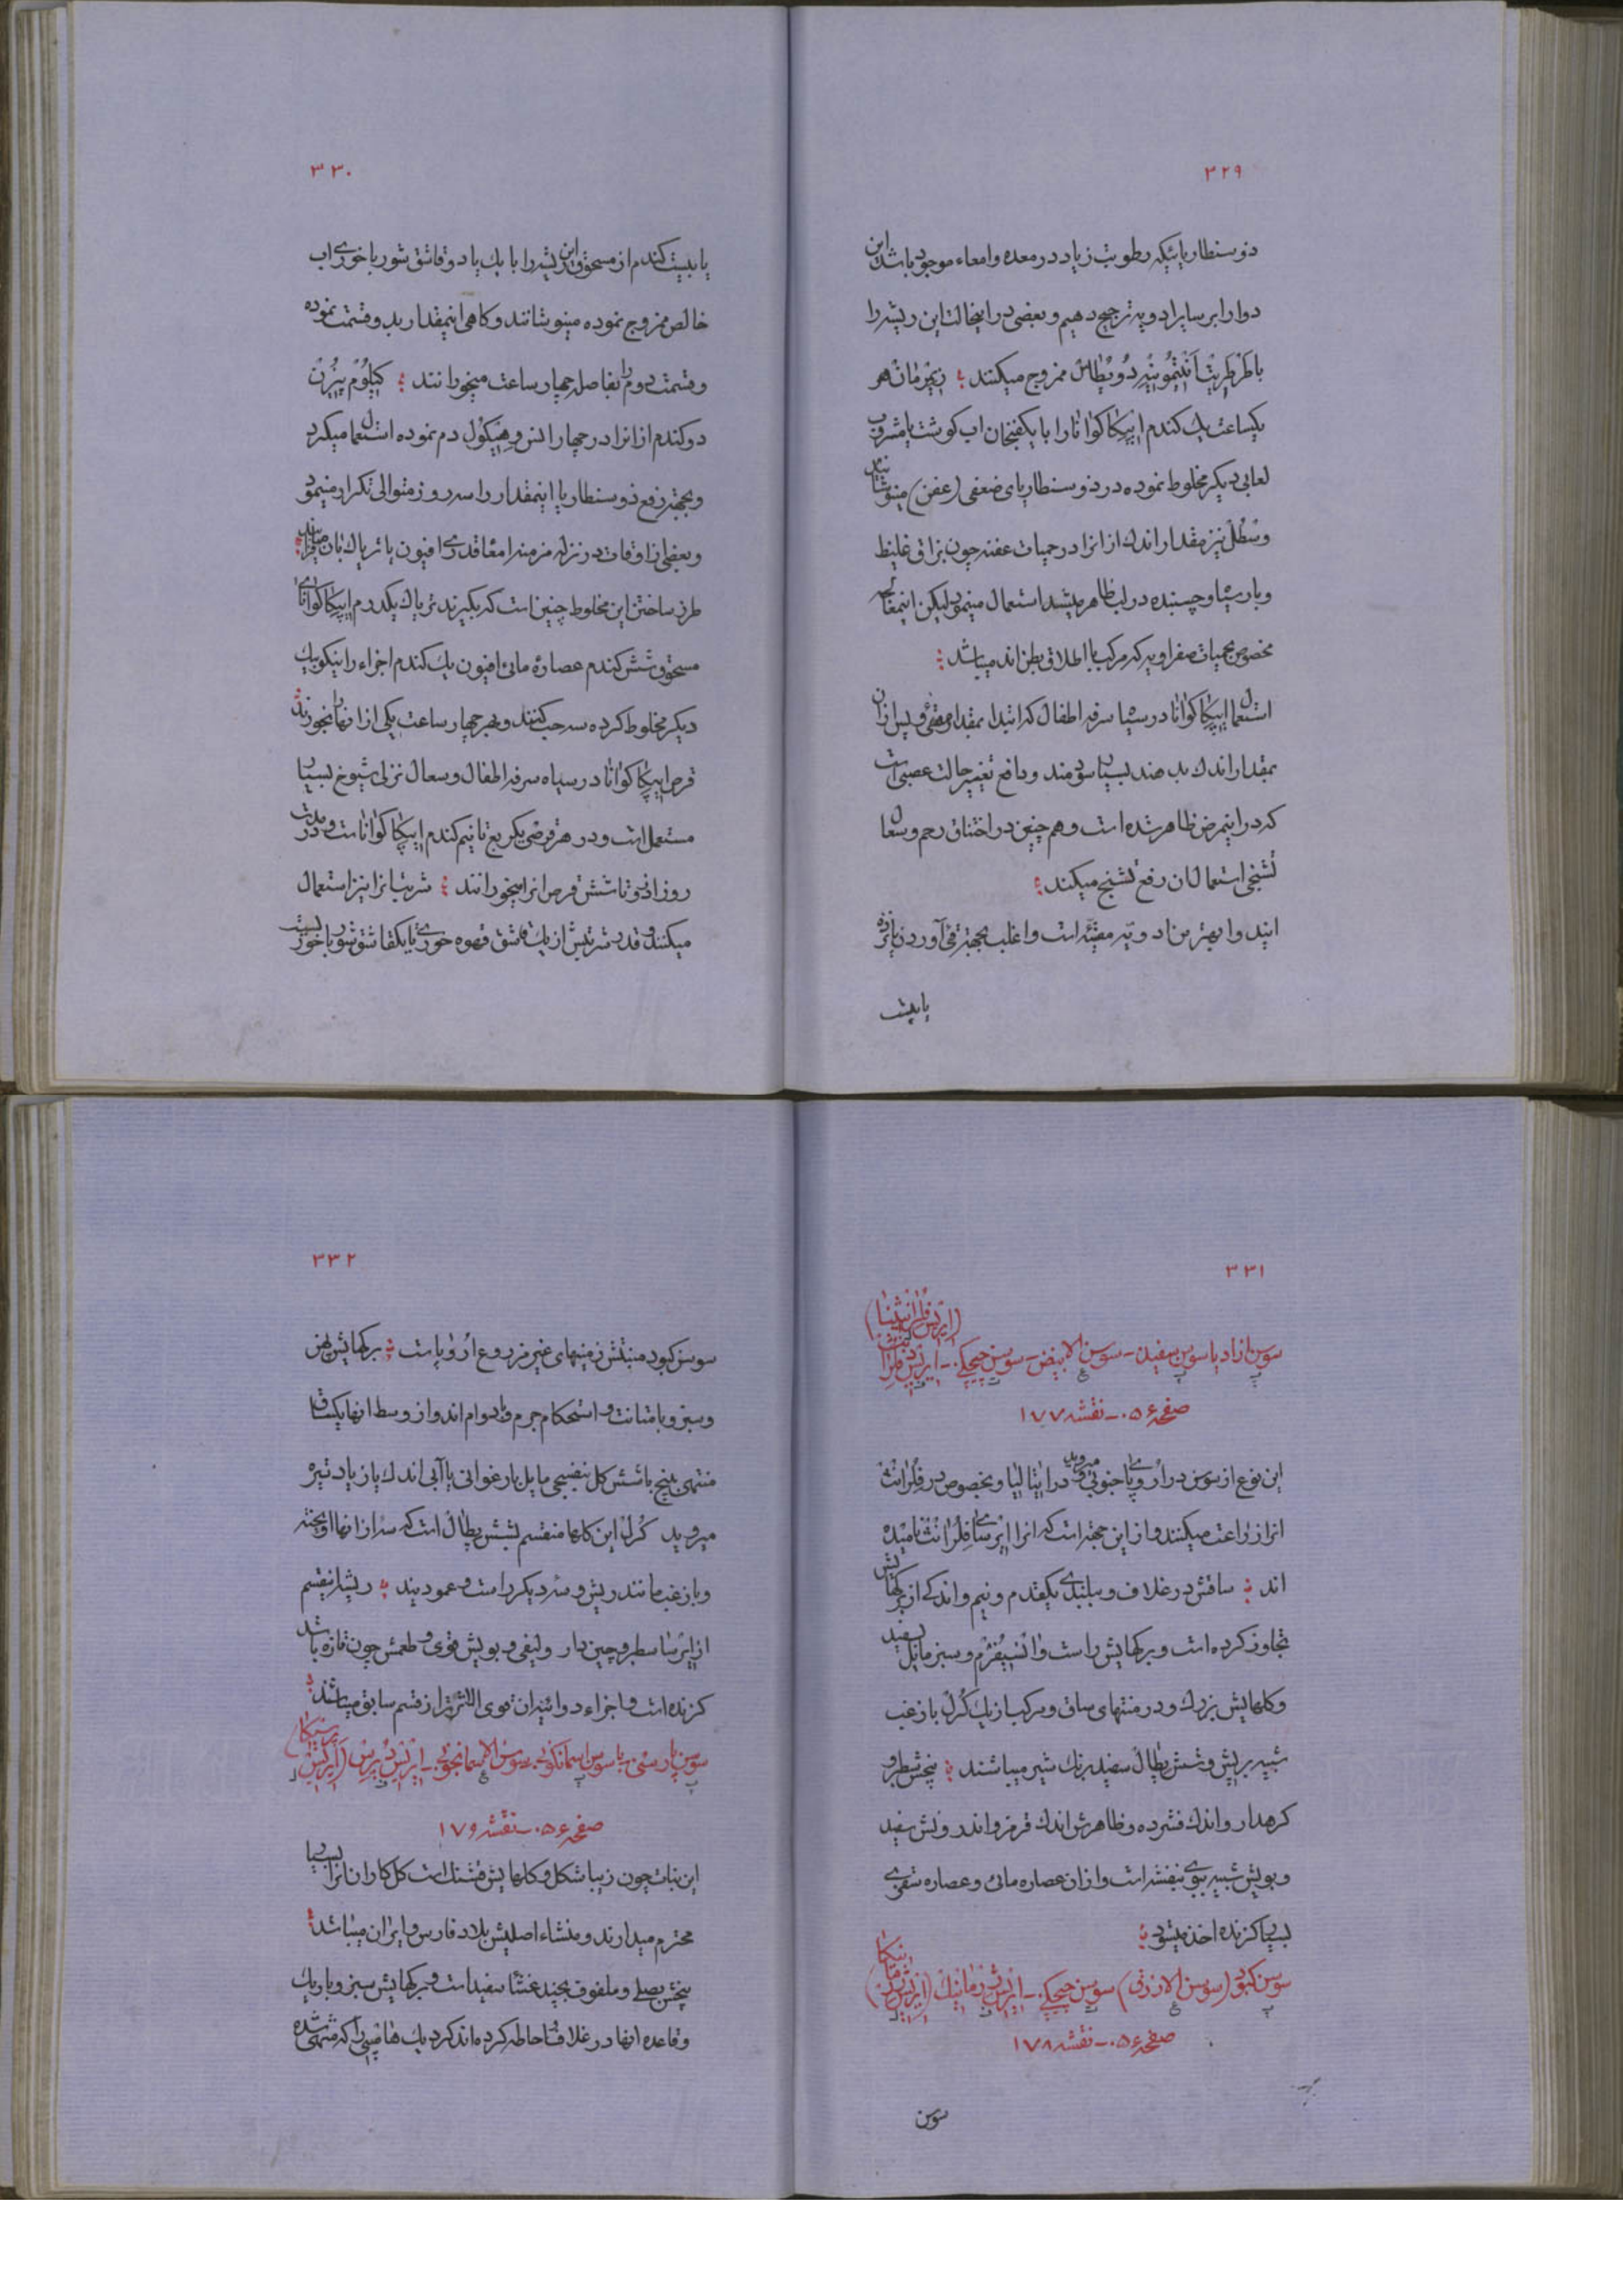 ۳۲۹
ذوسنطاریائیکه رطوبت زیاد در معده و امعاء موجود باشد این
دوا را بر سایر ادویه ترجیح دهیم و بعضی در اینحالت این ریشه را
با طرطریت آنتیموئنیه دوپطاس ممزوج میکنند ؛ زیمرمان هر
یکساعت یک کندم ایپکاکوانا را با یکفنجان اب کوشت یا مشروب
لعابی دیکر مخلوط نموده در ذوسنطاریای ضعفی (عفن) مینوشانید
وسطل نیز مقدار اندک از انرا در حمیات عفنه چون بزاق غلیظ
و بار سیاه و چسبنده در لب ظاهر میشد استعمال مینمود لیکن اینمعالجه
مخصوص بحمیات صفراویه که مرکب با اطلاق بطن اند میباشد ؛
استعمال ایپکاکوانا در سیاه سرفه اطفال که ابتدا بمقدار مقئی و پس از ان
بمقدار اندک بدهند بسیار سودمند و دافع تغییر حالت عصبی است
که در اینمرض ظاهر شده است و هم چنین در اختناق رحم و سعال
تشنجی استعمال ان رفع تشنج میکند ؛
ایندوا بهترین ادویه مقیئه است و اغلب بجهته قی آوردن پانزده
یا بیست
۳۳۰
یا بیست کندم از مسحوق این ریشه را با یک یا دو قاشق شورباخوری اب
خالص ممزوج نموده مینوشانند و کاهی اینمقدار بدو قسمت نموده
و قسمت دوم را بفاصله چهار ساعت میخورانند ؛ کیلوم پیزن
دو کندم از انرا در چهار انس وهیکول دم نموده استعمال میکرد
و بجهته رفع ذوسنطاریا اینمقدار را سه روز متوالی تکرار مینمود
و بعضی از اوقات در نزله مزمنه امعا قدری افیون یا تریاک بان میافزایند ؛
طرز ساختن این مخلوط چنین است که بکیرند تریاک یکدرم ایپکاکوانای
مسحوق شش کندم عصاره مائی افیون یک کندم اجزاء را نیکو بیک
دیکر مخلوط کرده سه حب کنند و بهر چهار ساعت یکی از انها را بخورند ؛
قرص ایپکاکوانا در سیاه سرفه اطفال و سعال نزلی شیوخ بسیار
مستعمل است و در هر قرصی یکربع تا نیم کندم ایپکاکوانا است و در مدت
روز از دو تا شش قرص انرا میخورانند ؛ شربت انرا نیز استعمال
میکنند و قدر شربتش از یک قاشق قهوه خوری تا یکقاشق شورباخوریست
۳۳۱
سوسن ازاد یا سوسن سفید ـ سوسن الابیض ـ سوسن چیچکی ـ ایریس دفلرانس (ایریس فلرانتینا)
صفحه ۵۶۰ ـ نقشه ۱۷۷
این نوع از سوسن در اروپای جنوبی میروید و در ایتالیا و بخصوص در فلرانس
انرا زراعت میکنند و از این جهته است که انرا ایرسای فلرانس نامیده
اند ؛ ساقش در غلاف و ببلندی یکقدم و نیم و اندکی از برکهایش
تجاوز کرده است و برکهایش راست و انسیفرم و سبز مایل بسفید
و کلهایش بزرک و در منتهای ساق و مرکب از یک کرل با زغب
شبیه بریش و شش پطال سفید برنک شیر میباشند ؛ بیخش سطبر و
کرهدار و اندک فشرده و ظاهرش اندک قرمز و اندرونش سفید
و بویش شبیه ببوی بنفشه است و از ان عصاره مائی و عصاره سقزی
بسیار کزنده اخذ میشود ؛
سوسن کبود (سوسن الازرق) سوسن چیچکی ـ ایریس ژرمانیک (ایریس ژرمانیکا)
صفحه ۵۶۰ ـ نقشه ۱۷۸
سوسن
۳۳۲
سوسن کبود منبتش زمینهای غیر مزروع اروپا است ؛ برکهایش پهن
و سبز و با متانت و استحکام جرم و با دوام اند و از وسط انها یکساق
منتهی به پنج یا شش کل بنفسجی مایل بارغوانی یا آبی اندک یا زیاد تیره
میروید کرل این کلها منقسم بشش پطال است که سه از انها اویخته
و با زغب مانند ریش و سه دیکر راست و عمودیند ؛ ریشه اینقسم
از ایرسا سطبر و چین دار و لیفی و بویش قوی و طعمش چون تازه باشد
کزنده است و اجزاء دوائیه ان قوی الاثرتر از قسم سابق میباشند ؛
سوسن پارسی یا سوسن اسمانکونی ـ سوسن الاسمانجونی ـ ایریس دپرس (ایریس پرسیکا)
صفحه ۵۶۰ ـ نقشه ۱۷۹
این نبات چون زیبا شکل و کلهایش قشنک است کل کاران انرا بسیار
محترم میدارند و منشاء اصلیش بلاد فارس و ایران میباشد ؛
بیخش بصلی و ملفوف بچند غشاء سفید است و برکهایش سبز و باریک
و قاعده انها در غلافی احاطه کرده اند کرد یک هامپی را که منتهی شده